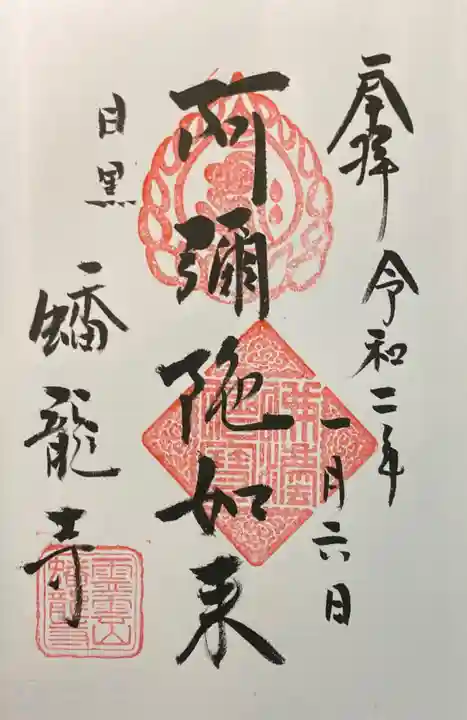 奉拝 令和二年
一月六日
阿彌陀如来
目黒 蟠龍寺
霊雲山
蟠龍寺